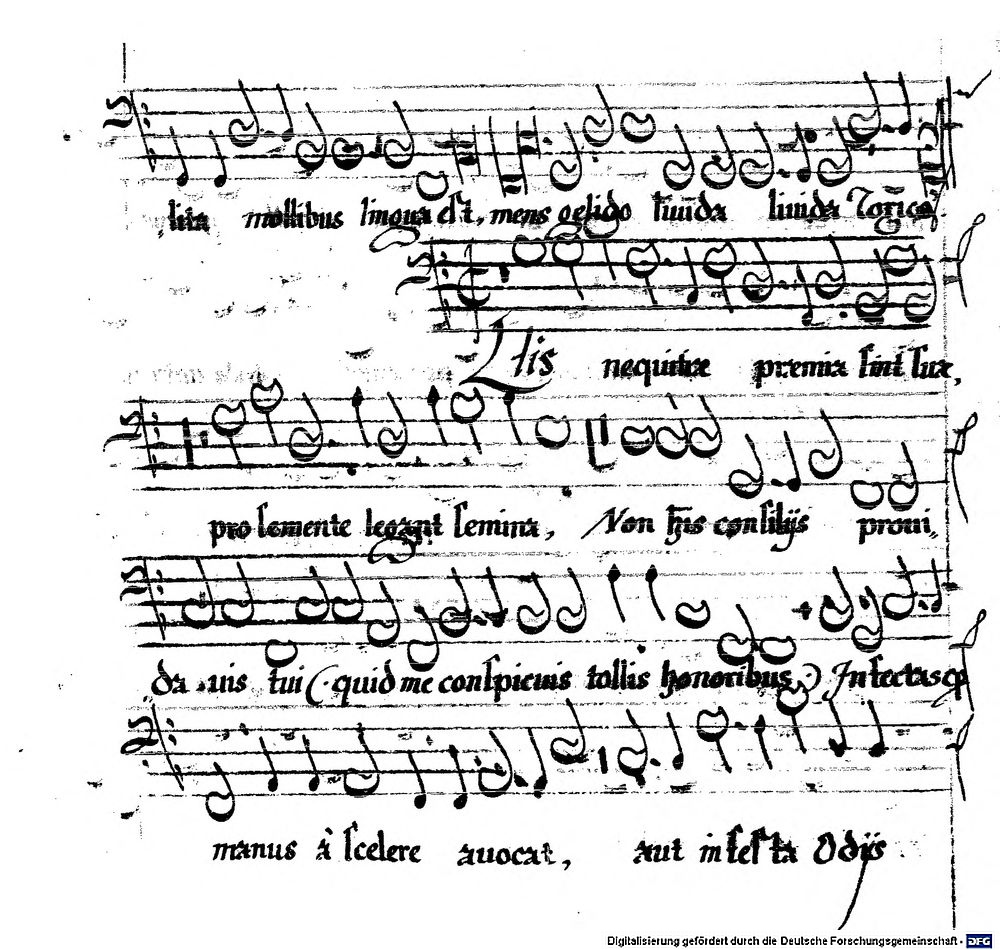 lita mollibus lingua est, mens gelido liuida liuida Torico.
nequitiæ premia sint suæ,
pro semente legant semina, Non his consilijs proui,,
da .uis tui (quid me conspicuis tollis honoribus.) Infectasq
manus à scelere auocat, aut infesta Odijs
Digitalisierung gefördert durch die Deutsche Forschungsgemeinschaft - DFG